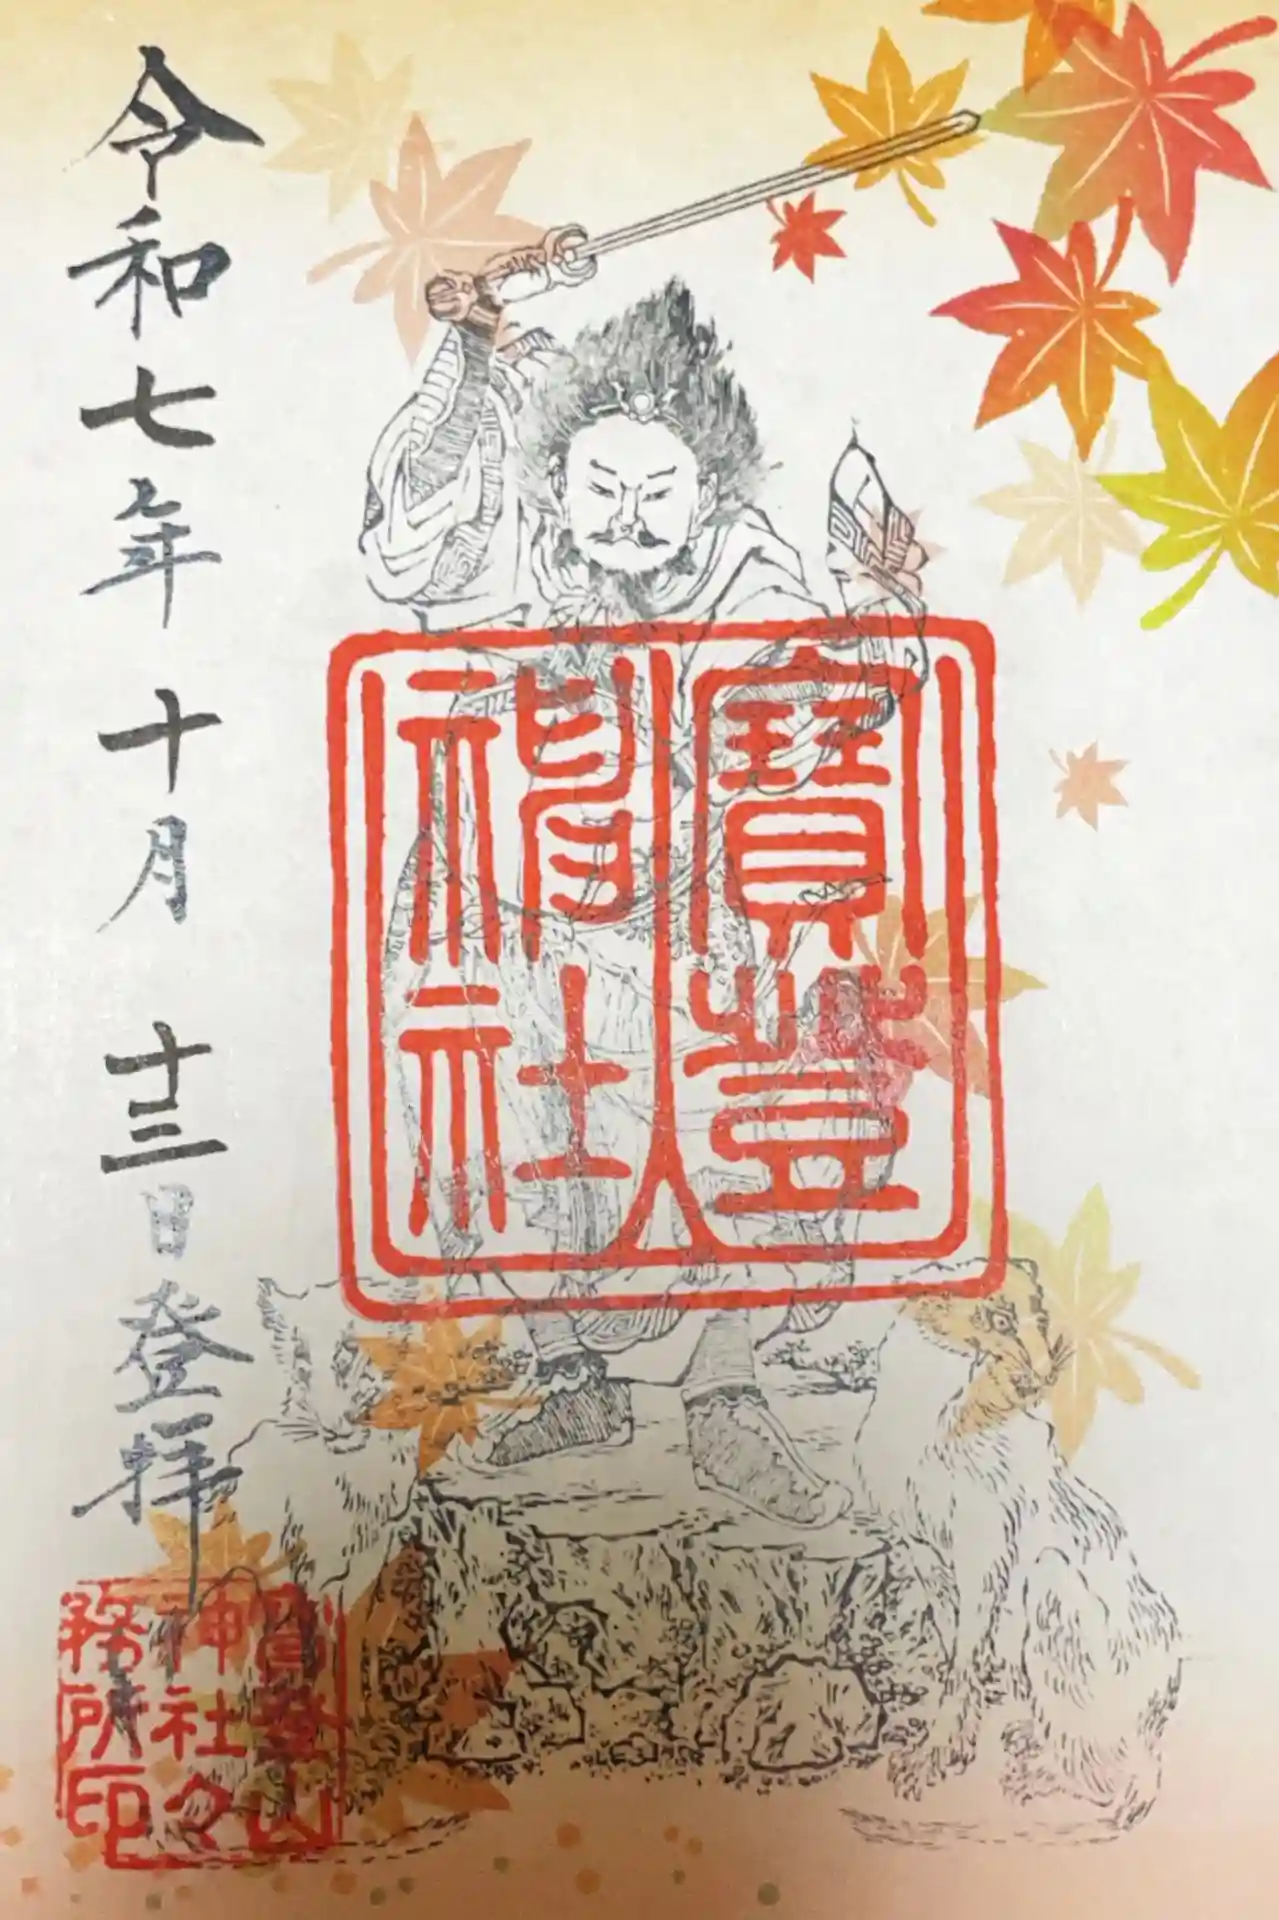 寶登
神社
令和七年 十月 十三日登拝
寶登山
神社之
務所印